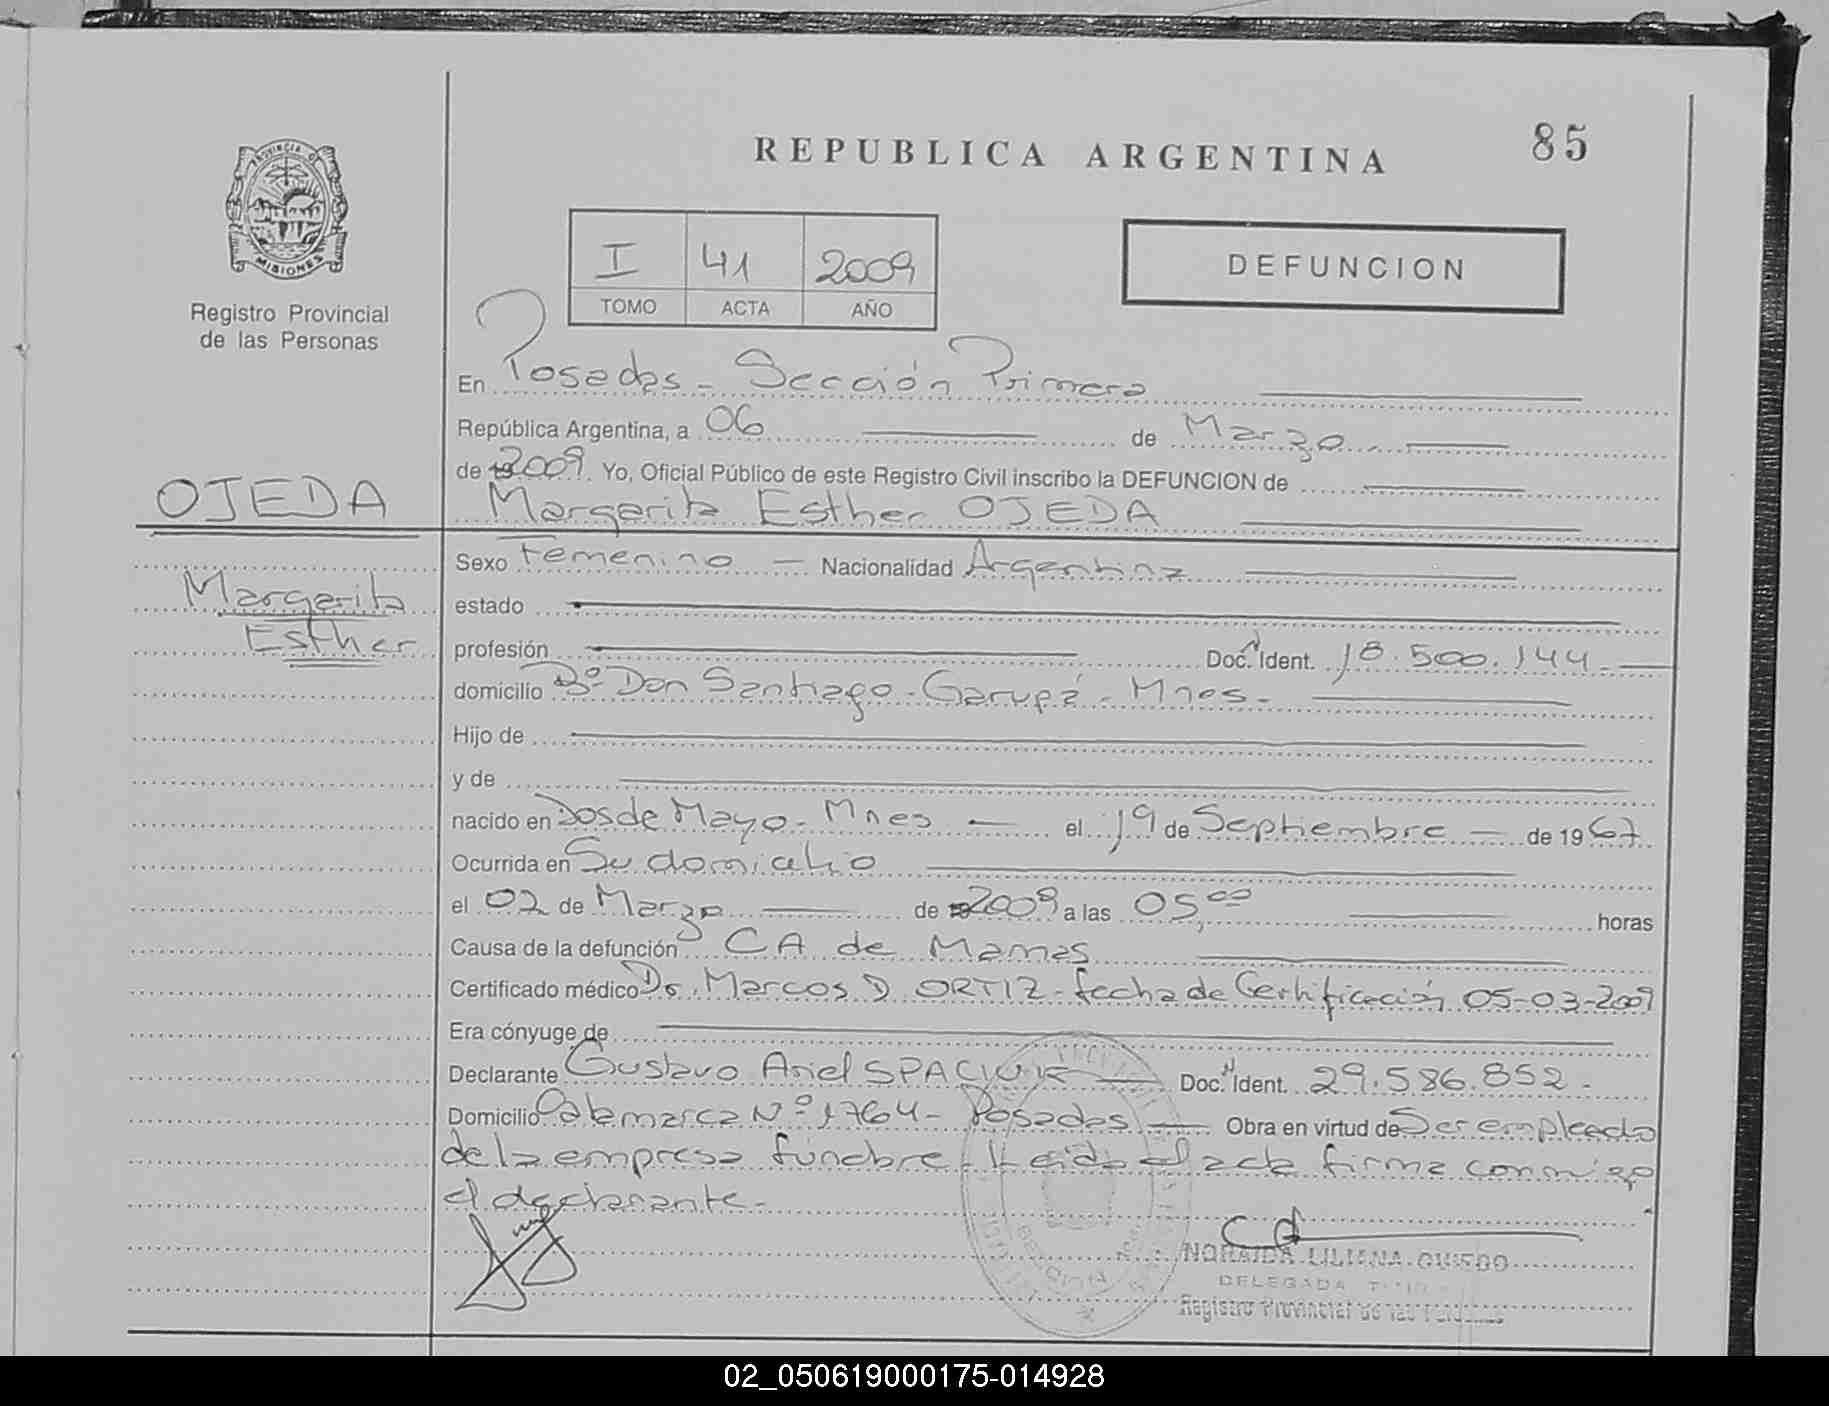 REPUBLICA ARGENTINA
85
PROVINCIA DE
MISIONES
Registro Provincial
de las Personas
I 41 2009
TOMO ACTA AÑO
DEFUNCION
En Posadas - Sección Primera
República Argentina, a 06 de Marzo
de 19 2009. Yo, Oficial Público de este Registro Civil inscribo la DEFUNCION de
OJEDA
Margarita Esther OJEDA
Margarita
Esther
Sexo Femenino — Nacionalidad Argentina
estado
profesión Doc. N Ident. 18.500.144.
domicilio Bº Don Santiago - Garupá - Mnes -
Hijo de
y de
nacido en Dos de Mayo - Mnes — el 19 de Septiembre — de 1967
Ocurrida en Su domicilio
el 02 de Marzo de 19 2009 a las 05,00 horas
Causa de la defunción CA de Mamas
Certificado médico Dr. Marcos D ORTIZ - fecha de Certificación 05-03-2009
Era cónyuge de
Declarante Gustavo Ariel SPACIUK — Doc. N Ident. 29.586.852.
Domicilio Catamarca Nº 1764 - Posadas — Obra en virtud de Ser empleado
de la empresa fúnebre. Leida el acta firma conmigo
el declarante.-
NORAIDA LILIANA OVIEDO
DELEGADA
Registro Provincial de las Personas
02_050619000175-014928